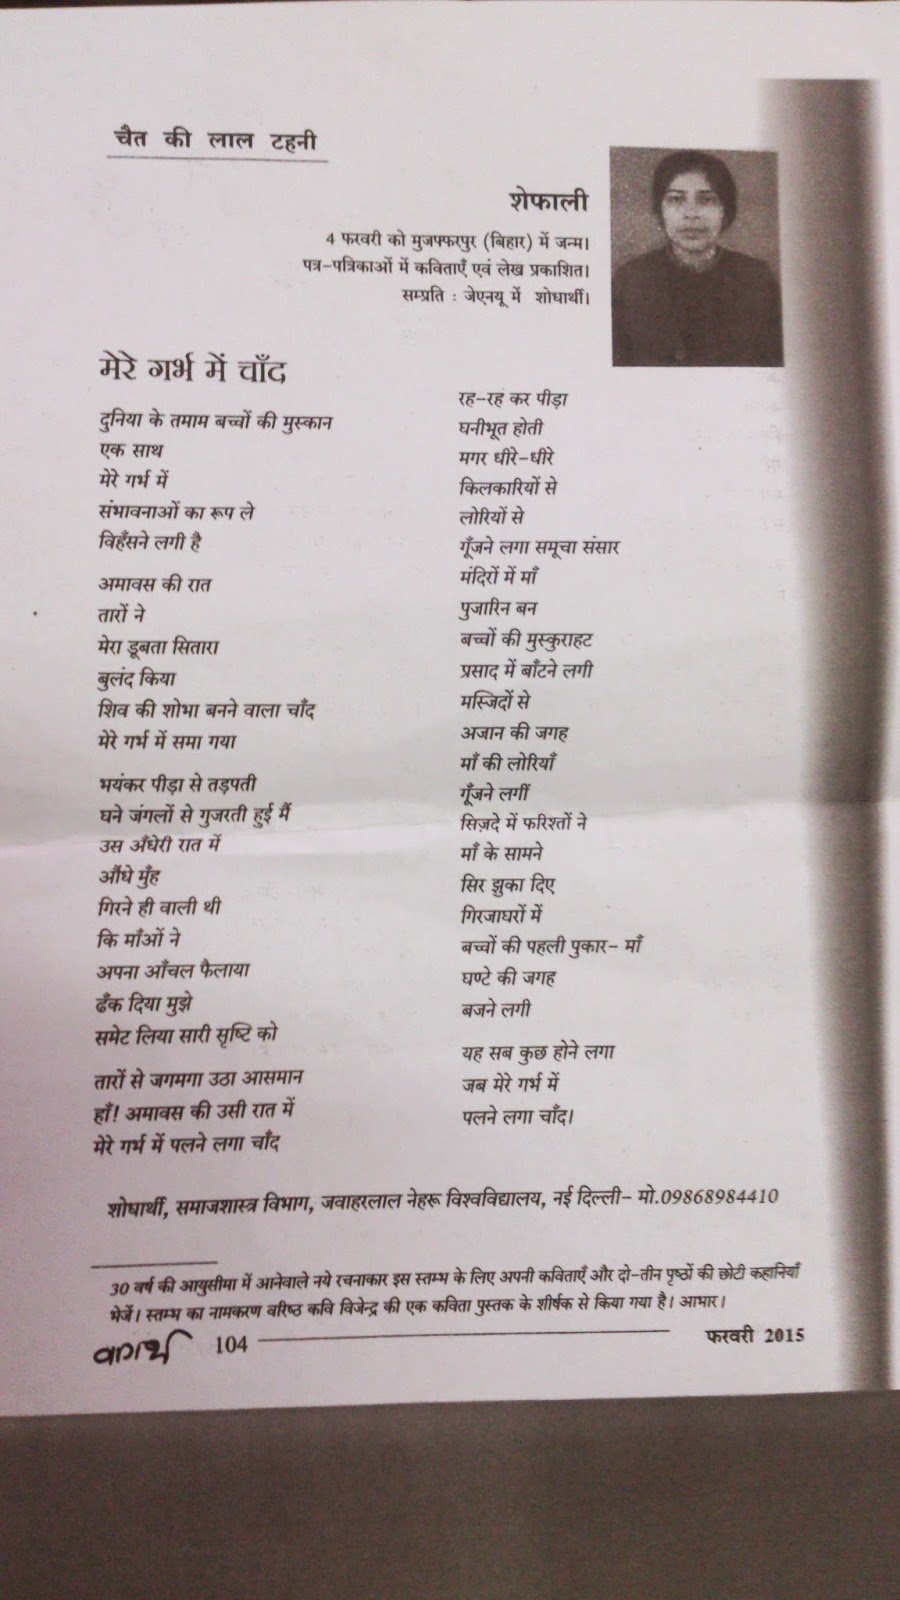 चैत की लाल टहनी
शेफाली
4 फरवरी को मुजफ्फरपुर (बिहार) में जन्म।
पत्र-पत्रिकाओं में कविताएँ एवं लेख प्रकाशित।
सम्प्रति : जेएनयू में शोधार्थी।
मेरे गर्भ में चाँद
दुनिया के तमाम बच्चों की मुस्कान
एक साथ
मेरे गर्भ में
संभावनाओं का रूप ले
विहँसने लगी है
अमावस की रात
तारों ने
मेरा डूबता सितारा
बुलंद किया
शिव की शोभा बनने वाला चाँद
मेरे गर्भ में समा गया
भयंकर पीड़ा से तड़पती
घने जंगलों से गुजरती हुई मैं
उस अँधेरी रात में
औंधे मुँह
गिरने ही वाली थी
कि माँओं ने
अपना आँचल फैलाया
ढँक दिया मुझे
समेट लिया सारी सृष्टि को
तारों से जगमगा उठा आसमान
हाँ! अमावस की उसी रात में
मेरे गर्भ में पलने लगा चाँद
रह-रह कर पीड़ा
घनीभूत होती
मगर धीरे-धीरे
किलकारियों से
लोरियों से
गूँजने लगा समूचा संसार
मंदिरों में माँ
पुजारिन बन
बच्चों की मुस्कुराहट
प्रसाद में बाँटने लगी
मस्जिदों से
अजान की जगह
माँ की लोरियाँ
गूँजने लगीं
सिज़दे में फरिश्तों ने
माँ के सामने
सिर झुका दिए
गिरजाघरों में
बच्चों की पहली पुकार- माँ
घण्टे की जगह
बजने लगी
यह सब कुछ होने लगा
जब मेरे गर्भ में
पलने लगा चाँद।
शोधार्थी, समाजशास्त्र विभाग, जवाहरलाल नेहरू विश्वविद्यालय, नई दिल्ली- मो.09868984410
30 वर्ष की आयुसीमा में आनेवाले नये रचनाकार इस स्तम्भ के लिए अपनी कविताएँ और दो-तीन पृष्ठों की छोटी कहानियाँ
भेजें। स्तम्भ का नामकरण वरिष्ठ कवि विजेन्द्र की एक कविता पुस्तक के शीर्षक से किया गया है। आभार।
वागर्थ 104 फरवरी 2015